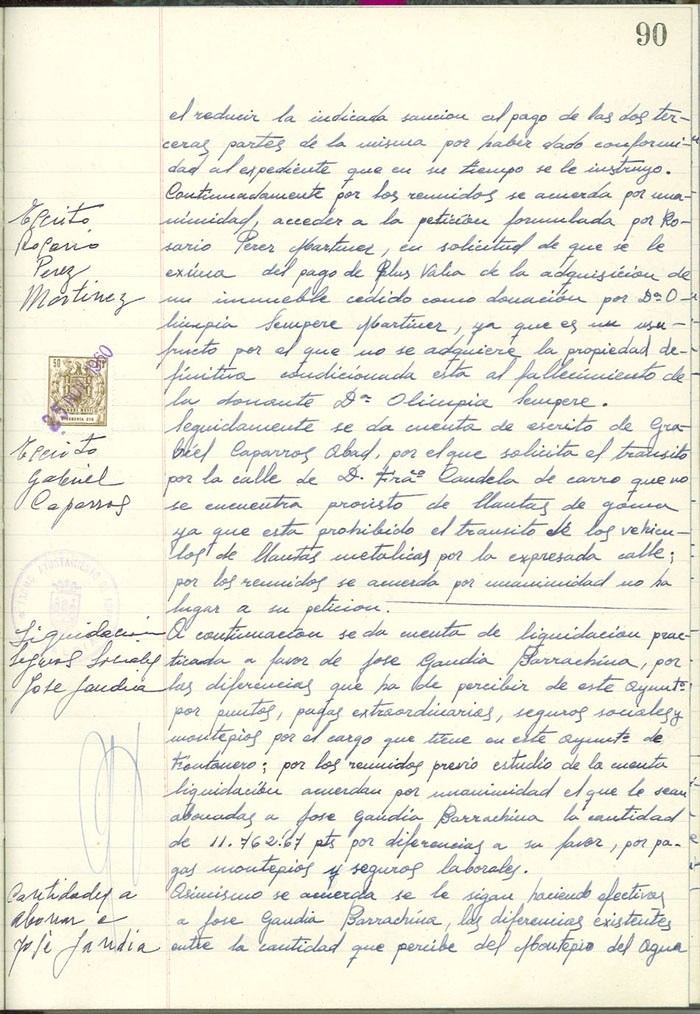 90
el reducir la indicada sancion al pago de las dos ter-
ceras partes de la misma por haber dado conformi-
dad al expediente que en su tiempo se le instruyo.
Continuadamente por los reunidos se acuerda por una-
Escrito
Rosario
Perez
Martinez
nimidad, acceder a la petición formulada por Ro-
sario Perez Martinez, en solicitud de que se le
exima del pago de Plus Valia de la adquisicion de
un inmueble cedido como donación por Dª O-
limpia Sempere Martinez, ya que es un usu-
fructo por el que no se adquiere la propiedad de-
finitiva condicionada esta al fallecimiento de
la donante Dª Olimpia Sempere.
50
1960
Seguidamente se da cuenta de escrito de Ga-
Escrito
Gabriel
Caparros
briel Caparros Abad, por el que solicita el transito
por la calle de D. Frаco Candela de carro que no
se encuentra provisto de llantas de goma
ya que esta prohibido el transito de los vehicu-
los de llantas metalicas por la expresada calle;
por los reunidos se acuerda por unanimidad no ha
lugar a su peticion.
AYUNTAMIENTO DE
Liquidación
Seguros Sociales
Jose Gandia
A continuacion se da cuenta de liquidacion prac-
ticada a favor de Jose Gandia Barrachina, por
las diferencias que ha de percibir de este Ayuntº
por puntos, pagas extraordinarias, seguros sociales y
montepios por el cargo que tiene en este Ayuntº de
Fontanero; por los reunidos previo estudio de la cuenta
liquidación acuerdan por unanimidad el que le sean
abonadas a Jose Gandia Barrachina la cantidad
de 11.762.67 pts por diferencias a su favor, por pa-
gas montepios y seguros laborales.
Cantidades a
abonar a
Jose Gandia
Asimismo se acuerda se le sigan haciendo efectivas
a Jose Gandia Barrachina, las diferencias existentes
entre la cantidad que percibe del Montepio del Agua